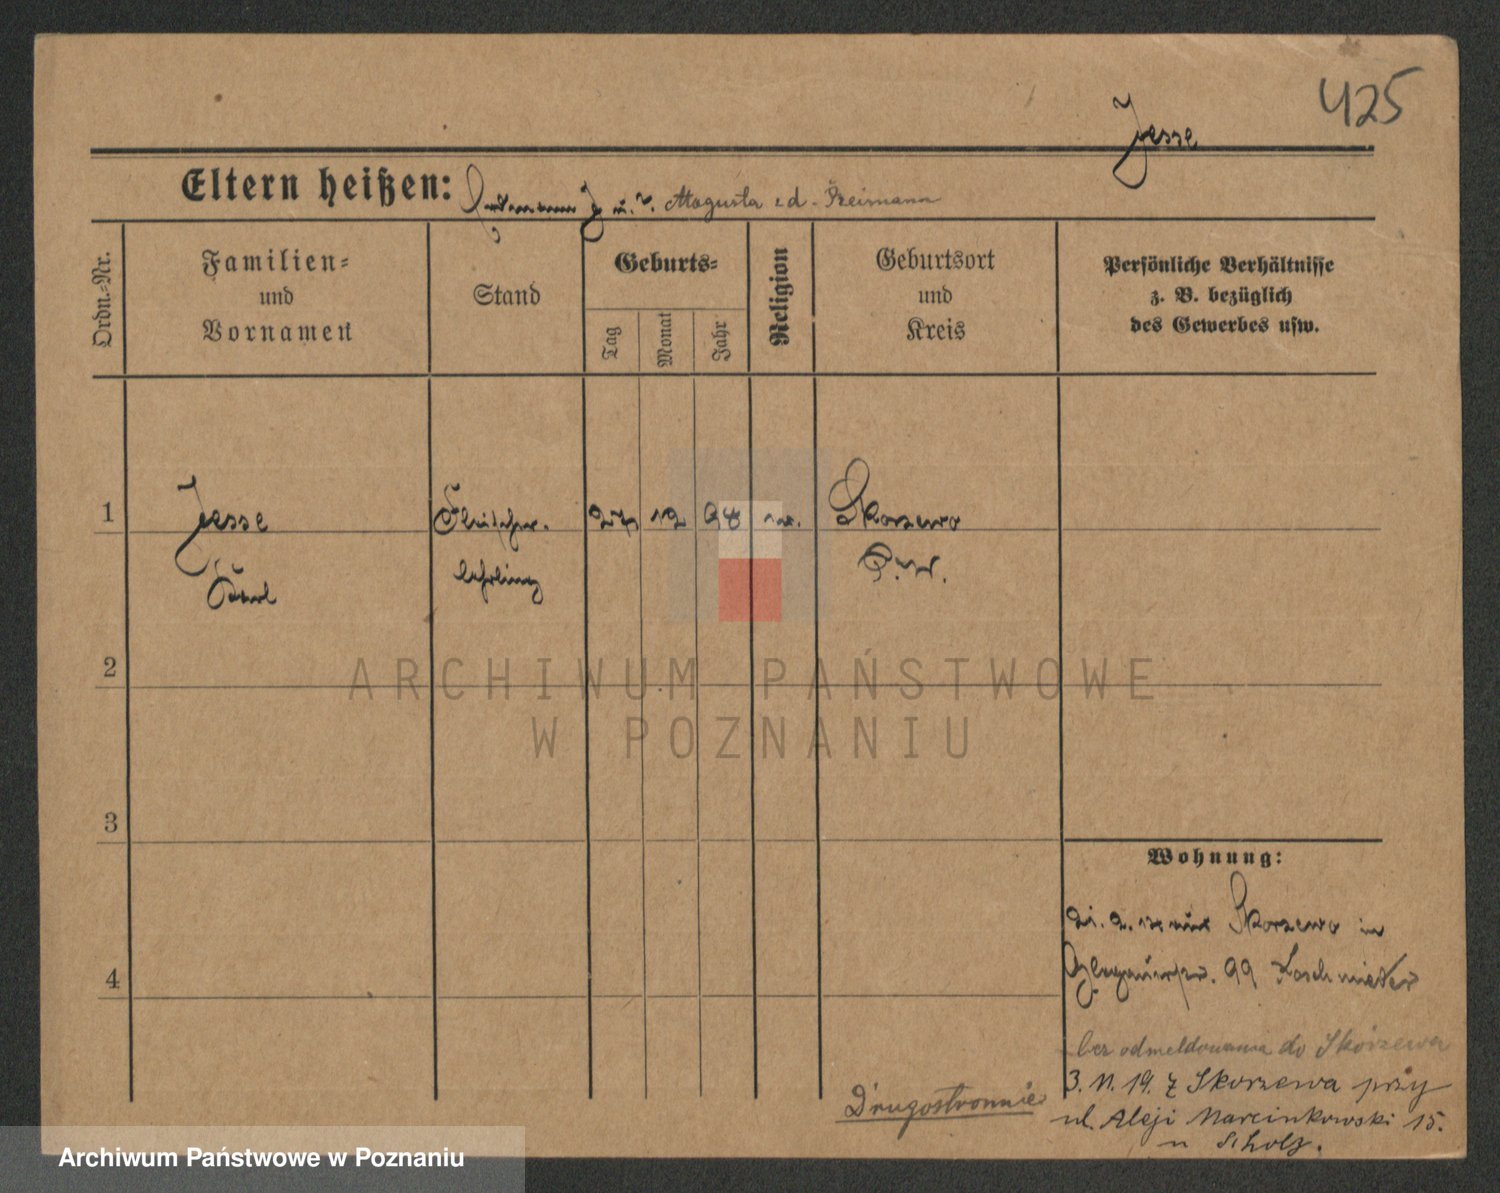 425
Jesse
Eltern heißen: Augusta
Ordn.-Nr.
Familien-
und
Vornamen
Stand
Geburts-
Tag
Monat
Jahr
Religion
Geburtsort
und
Kreis
Persönliche Verhältnisse
z. B. bezüglich
des Gewerbes usw.
1
Jesse
Karl
Fleischer-
lehrling
27
12
98
ev.
Skorzewo
P. W.
2
3
4
Wohnung:
Skorzewo in
99 Laschmieder
bez odmeldowania do Skórzewa
3. 11. 19. z Skorzewa przy
ul. Aleji Marcinkowski 15.
u Scholz.
Drugostronnie
ARCHIWUM PAŃSTWOWE
W POZNANIU
Archiwum Państwowe w Poznaniu